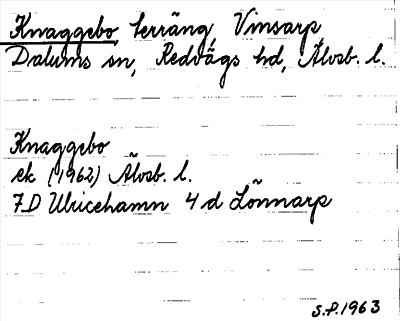 Knaggebo, terräng, Vinsarp,
Dalums sn, Redvägs hd, Älvsb. l.
Knaggebo
ek (1962) Älvsb. l.
7D Ulricehamn 4 d Lönnarp
S.P. 1963